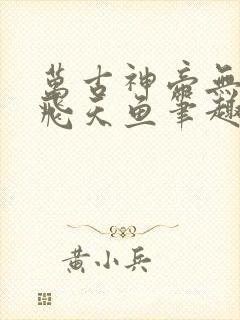 萬古神帝無
飛天魚筆趣
黃小兵